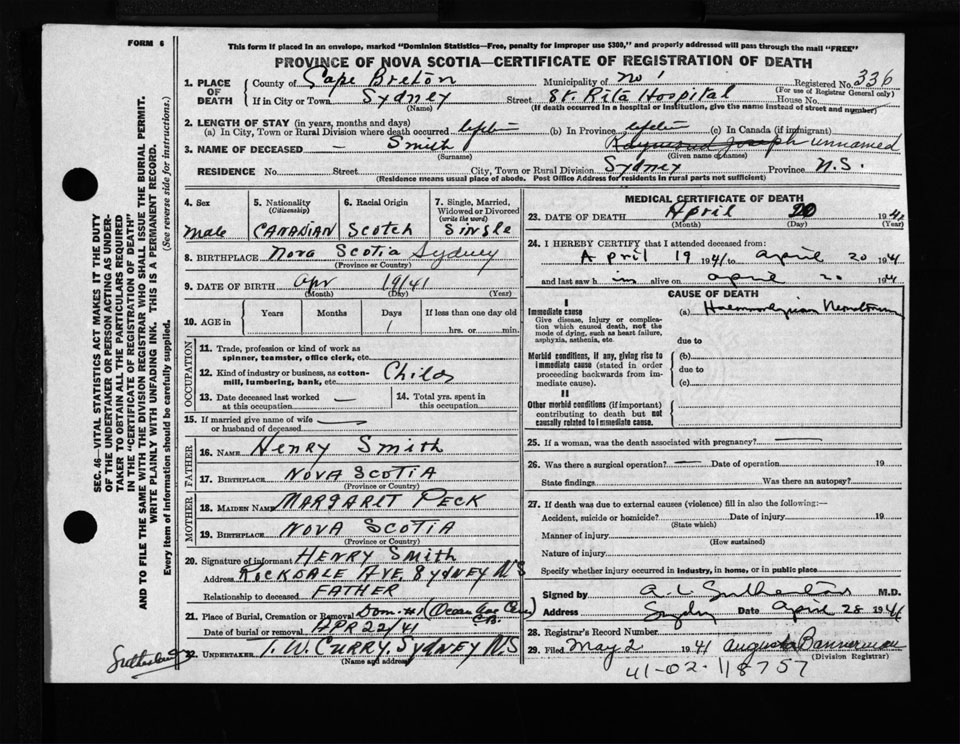 FORM 6
This form if placed in an envelope, marked "Dominion Statistics—Free, penalty for improper use $300," and properly addressed will pass through the mail "FREE"
PROVINCE OF NOVA SCOTIA—CERTIFICATE OF REGISTRATION OF DEATH
SEC. 46—VITAL STATISTICS ACT MAKES IT THE DUTY
OF THE UNDERTAKER OR PERSON ACTING AS UNDER-
TAKER TO OBTAIN ALL THE PARTICULARS REQUIRED
IN THE "CERTIFICATE OF REGISTRATION OF DEATH"
AND TO FILE THE SAME WITH THE DIVISION REGISTRAR WHO SHALL ISSUE THE BURIAL PERMIT.
WRITE PLAINLY WITH UNFADING INK. THIS IS A PERMANENT RECORD.
Every item of information should be carefully supplied. (See reverse side for instructions.)
1. PLACE OF DEATH County of Cape Breton Municipality of No 1 Registered No. 336
(For use of Registrar General only)
If in City or Town Sydney (Name) Street St. Rita Hospital House No.
(If death occurred in a hospital or institution, give the name instead of street and number)
2. LENGTH OF STAY (in years, months and days)
(a) In City, Town or Rural Division where death occurred lifetime (b) In Province lifetime (c) In Canada (if immigrant)
3. NAME OF DECEASED — Smith Raymond Joseph unnamed
(Surname) (Given name or names)
RESIDENCE No. Street City, Town or Rural Division Sydney Province N.S.
(Residence means usual place of abode. Post Office Address for residents in rural parts not sufficient)
4. Sex Male
5. Nationality (Citizenship) CANADIAN
6. Racial Origin Scotch
7. Single, Married, Widowed or Divorced (write the word) Single
8. BIRTHPLACE Nova Scotia Sydney
(Province or Country)
9. DATE OF BIRTH Apr 19/41
(Month) (Day) (Year)
10. AGE in Years Months Days 1 If less than one day old hrs. or min.
OCCUPATION
11. Trade, profession or kind of work as spinner, teamster, office clerk, etc.
12. Kind of industry or business, as cotton-mill, lumbering, bank, etc. Child
13. Date deceased last worked at this occupation —
14. Total yrs. spent in this occupation
15. If married give name of wife or husband of deceased —
FATHER
16. NAME Henry Smith
17. BIRTHPLACE NOVA SCOTIA
(Province or Country)
MOTHER
18. MAIDEN NAME MARGARET PECK
19. BIRTHPLACE NOVA SCOTIA
(Province or Country)
20. Signature of informant HENRY SMITH
Address ROCKDALE AVE. SYDNEY NS
Relationship to deceased FATHER
21. Place of Burial, Cremation or Removal Dom. #1 C.B.
Date of burial or removal APR 22/41
22. UNDERTAKER T. W. CURRY, SYDNEY NS
(Name and address)
MEDICAL CERTIFICATE OF DEATH
23. DATE OF DEATH April 20 1941
(Month) (Day) (Year)
24. I HEREBY CERTIFY that I attended deceased from:
April 19 1941 to April 20 1941
and last saw h im alive on April 20 1941
CAUSE OF DEATH
I
Immediate cause
Give disease, injury or complication which caused death, not the mode of dying, such as heart failure, asphyxia, asthenia, etc.
(a)
due to
Morbid conditions, if any, giving rise to immediate cause (stated in order proceeding backwards from immediate cause).
(b)
due to
(c)
II
Other morbid conditions (if important) contributing to death but not causally related to immediate cause.
25. If a woman, was the death associated with pregnancy? —
26. Was there a surgical operation? — Date of operation 19
State findings Was there an autopsy?
27. If death was due to external causes (violence) fill in also the following:—
Accident, suicide or homicide? Date of injury 19
(State which)
Manner of injury
(How sustained)
Nature of injury
Specify whether injury occurred in industry, in home, or in public place
Signed by A L Sutherland M.D.
Address Sydney Date April 28 1941
28. Registrar's Record Number
29. Filed May 2 1941 Augusta Bannerman
(Division Registrar)
Sutherland
41-02-118757